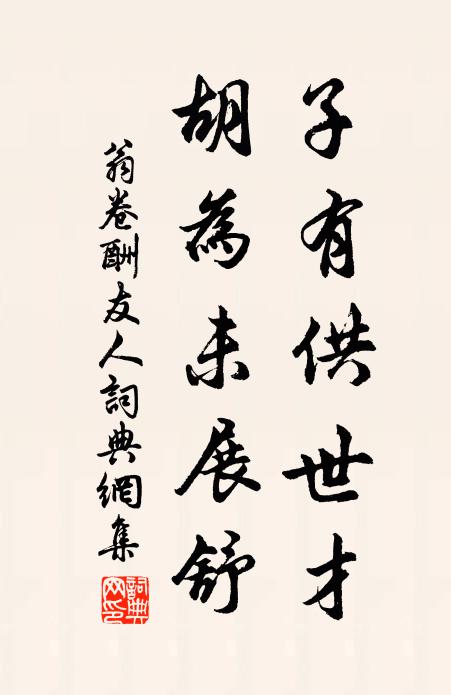 子有供世才
胡為未展舒
翁卷酬友人詞典網集
詞典網印